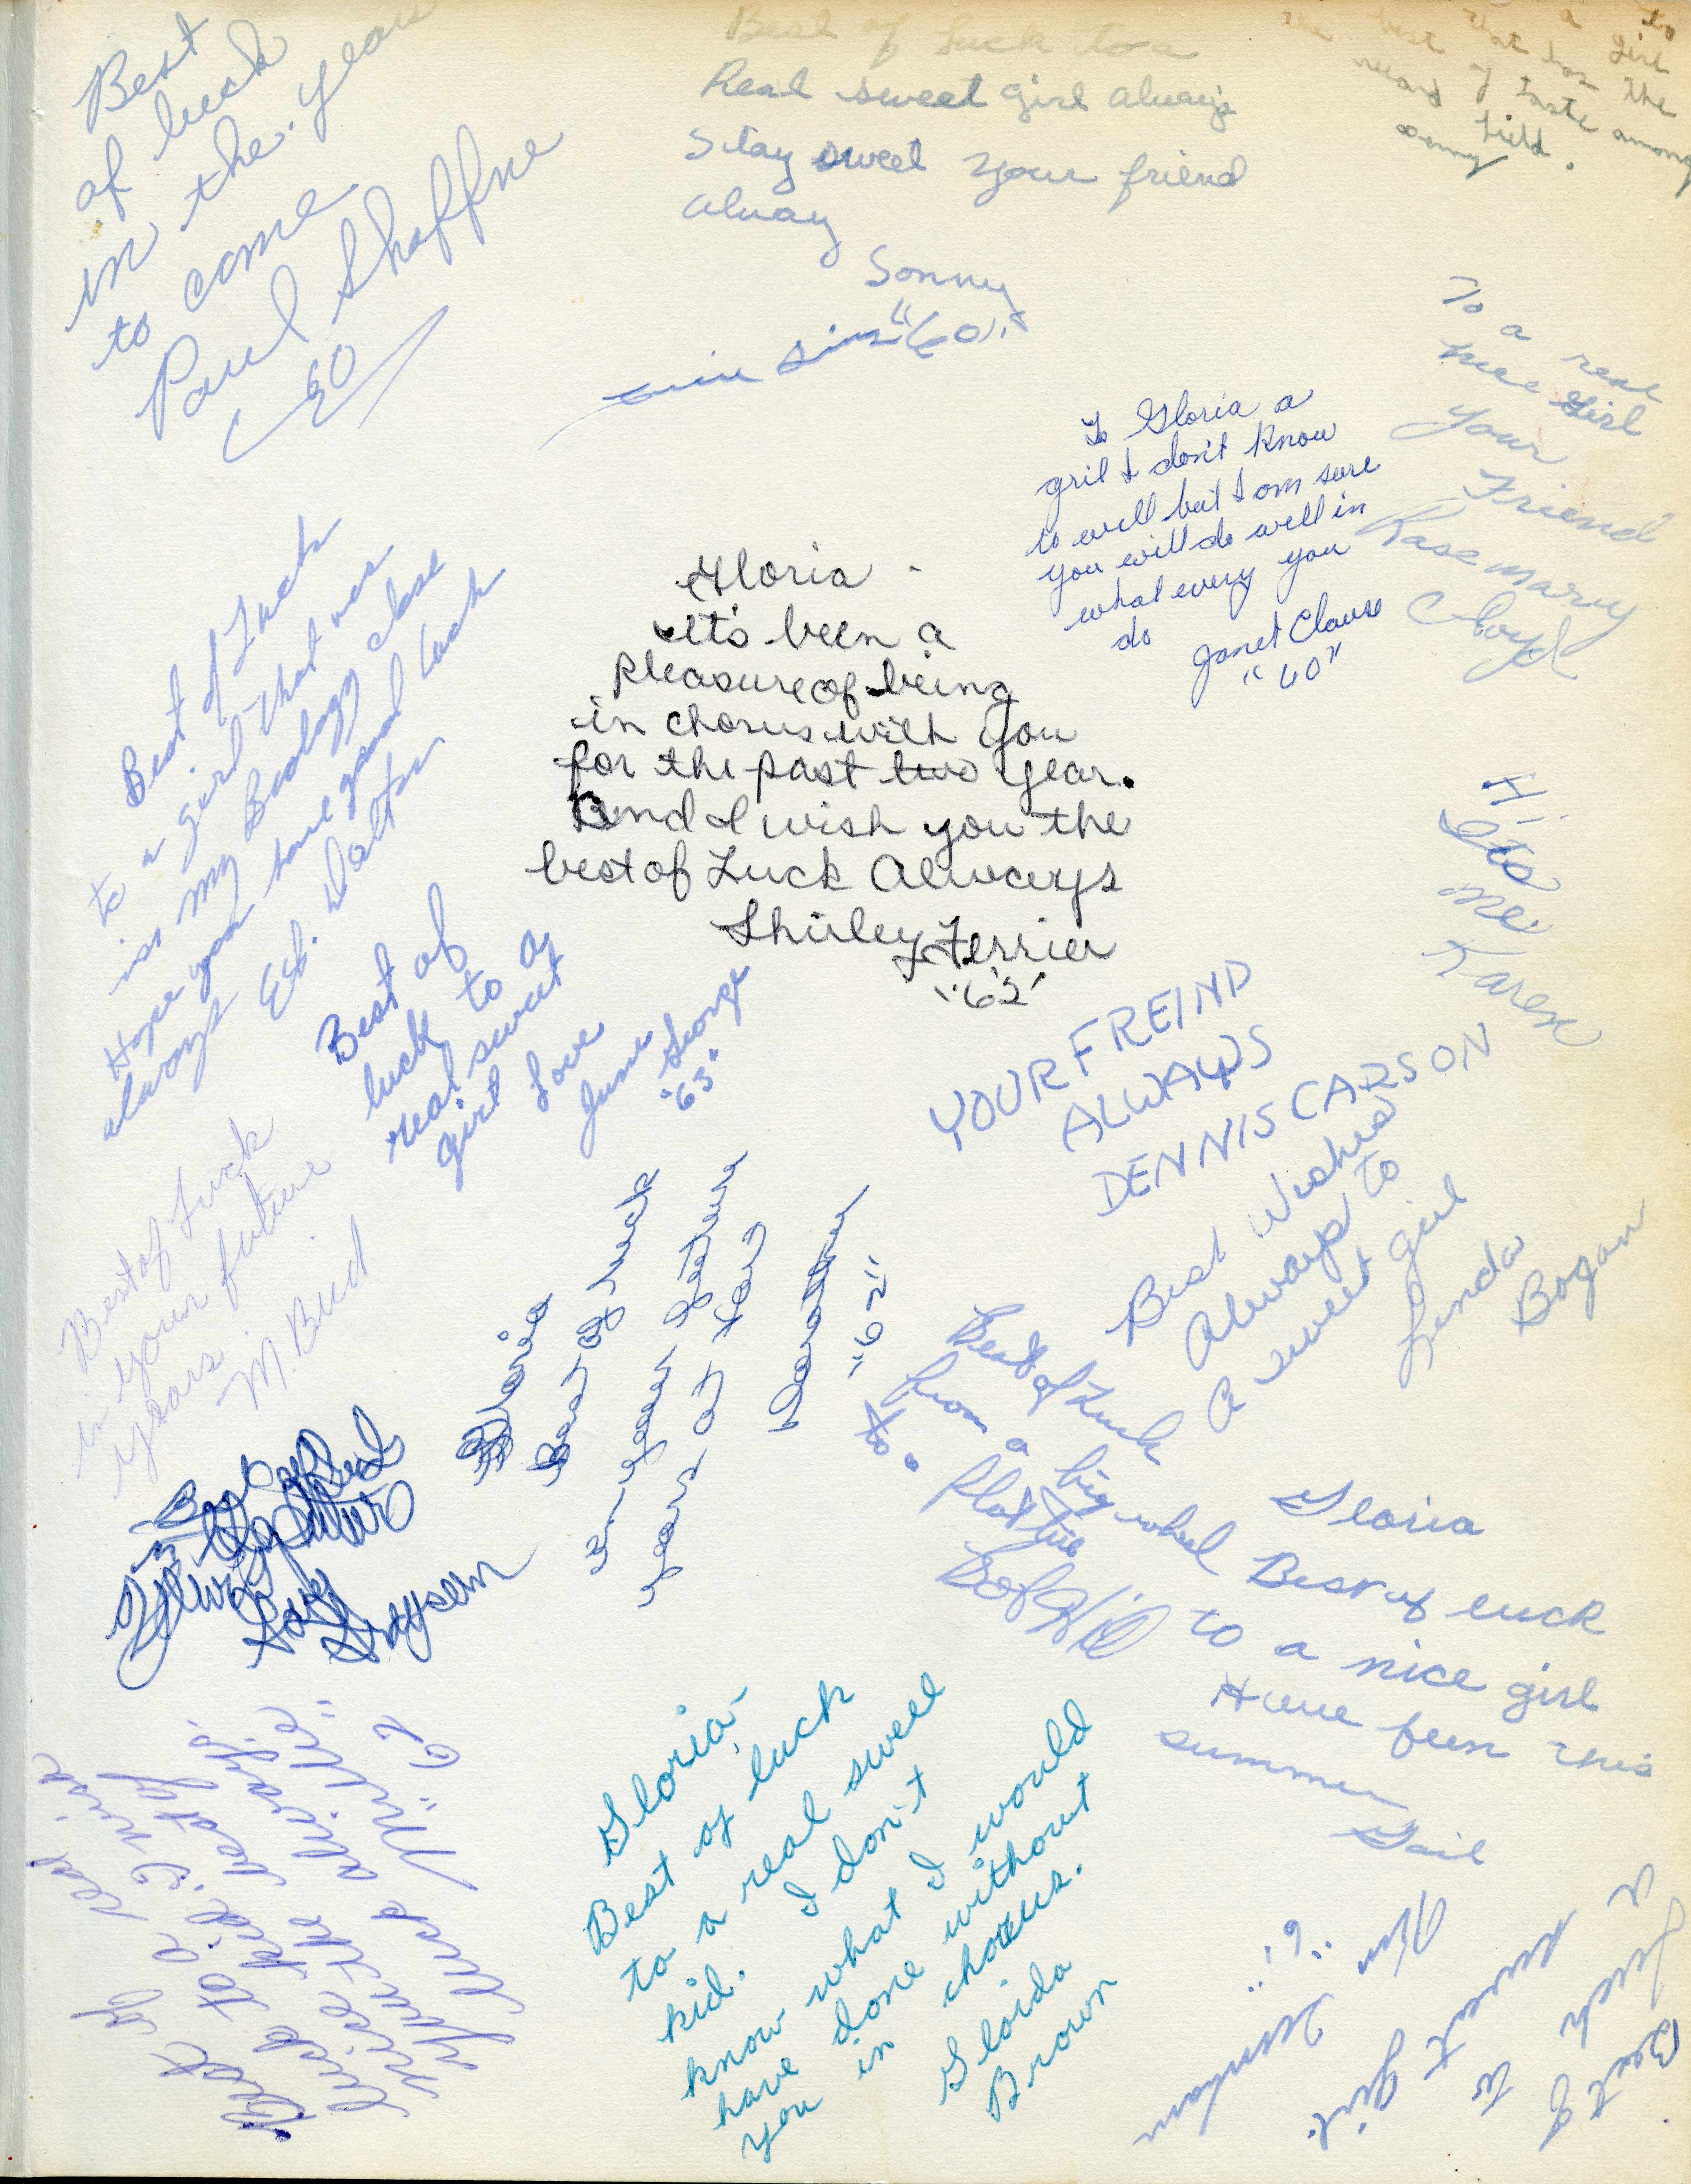 Best
of luck
in the years
to come
Paul Shaffne
60
Best of Luck to a
Real sweet girl always
Stay sweet your friend
alway
Sonny
"60"
the best
girl
that has the
of taste among
field.
Sonny
To a real
nice girl
Your
Friend
Rose mary
Cloyd
To Gloria a
gril I don't know
to well but I am sure
you will do well in
what every you
do
Janet Clause
"60"
Gloria -
It's been a
Pleasure of being
in chorus with you
for the past two year.
And I wish you the
best of Luck Always
Shirley Ferrier
"62"
Hi
Its
me
Karen
Best of Luck
to a girl that was
in my Beology close
Hope you have good luck
always
Ed. Dalton
Best of
luck to a
real sweet
girl Love
June George
"63"
YOUR FREIND
ALWAYS
DENNIS CARSON
Best of Luck
in your future
years.
M. Bud
Gloria
Best of luck
in your future
years at
"62"
Best Wishes
Always to
a sweet girl
Linda
Bogan
Best of Luck
from a big wheel
to a flat tire
Bob Hill
Best of Luck
in the future
Years
Grayson
Gloria
Best of luck
to a nice girl
Have feen this
summer
Gail
Gloria-
Best of luck
to a real sweet
kid. I don't
know what I would
have done without
you in chorus.
Gloida
Brown
Best of
luck to a real
nice kid.
62
Best of
Luck to
a sweet girl.
"61"